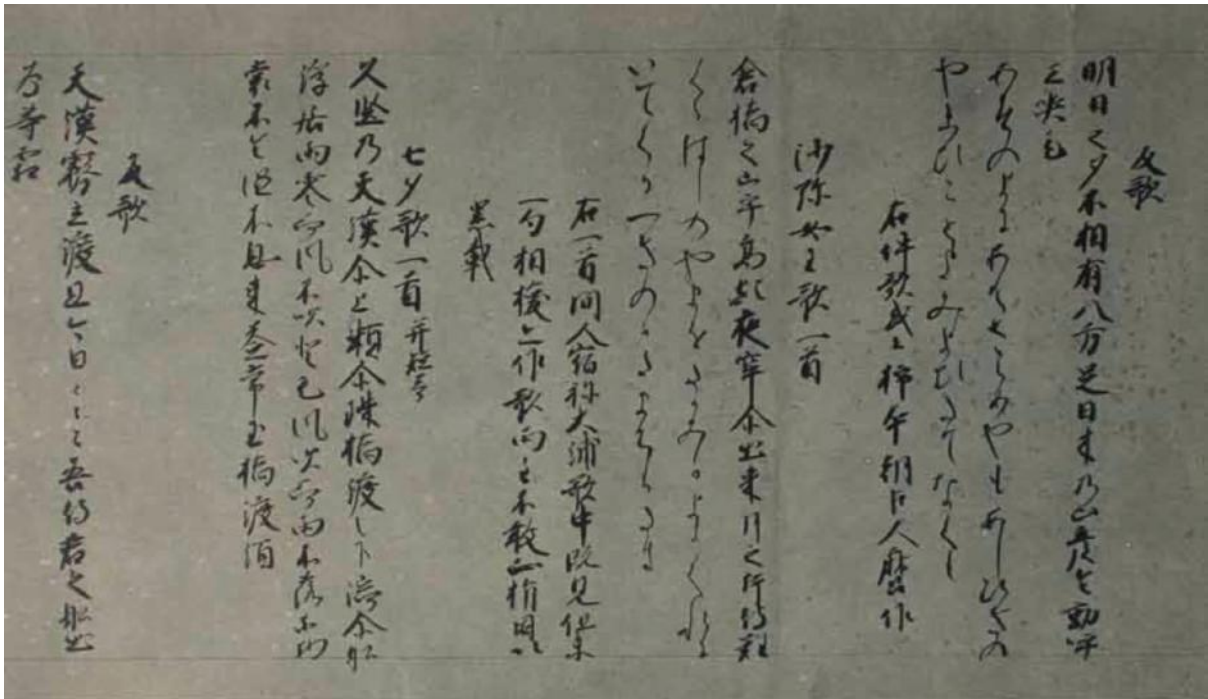 反歌
明日之夕不相有八方足日木乃山彦令動呼
立哭毛
あすのよひあはさらめやもあしひきの
やまひことよみよひたてなくも
右件歌或云柿本朝臣人麿作
沙弥女王歌一首
倉橋之山乎高歟夜窂尓出来月之片待難
くらはしのやまをたかみかよこもりに
いてくるつきのかたまちかたき
右一首間人宿祢大浦歌中既見但末
一句相換亦作歌両主不敢正指因以
累載
七夕歌一首并短歌
久堅乃天漢尓上瀬尓珠橋渡之下湍尓船
浮居雨零而風不吹登毛風吹而雨不落等物
裳不令湿不息来益常玉橋渡須
反歌
天漢霧立渡且今日〻〻〻吾待君之船出
為等霜